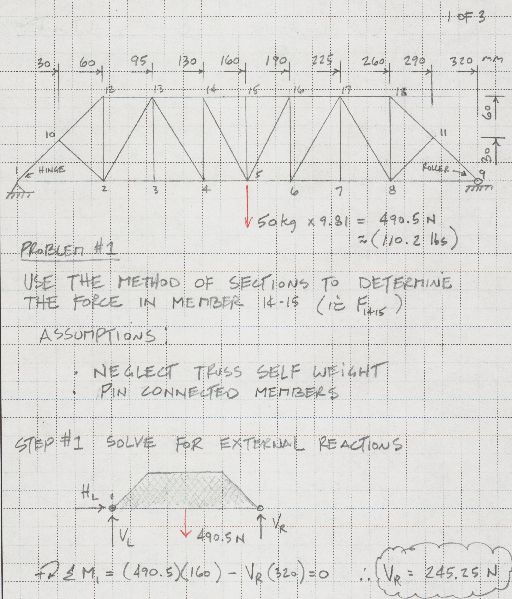 1 OF 3
30 60 95 130 160 190 225 260 290 320 mm
12 13 14 15 16 17 18
60
10 11
30
1 HINGE ROLLER 9
2 3 4 5 6 7 8
50kg x 9.81 = 490.5 N
≈ (110.2 lbs)
PROBLEM #1
USE THE METHOD OF SECTIONS TO DETERMINE
THE FORCE IN MEMBER 14-15 (ie F14-15)
ASSUMPTIONS:
· NEGLECT TRUSS SELF WEIGHT
· PIN CONNECTED MEMBERS
STEP #1 SOLVE FOR EXTERNAL REACTIONS
HL
VL 490.5 N VR
Σ M1 = (490.5)(160) - VR (320) = 0 ∴ VR = 245.25 N